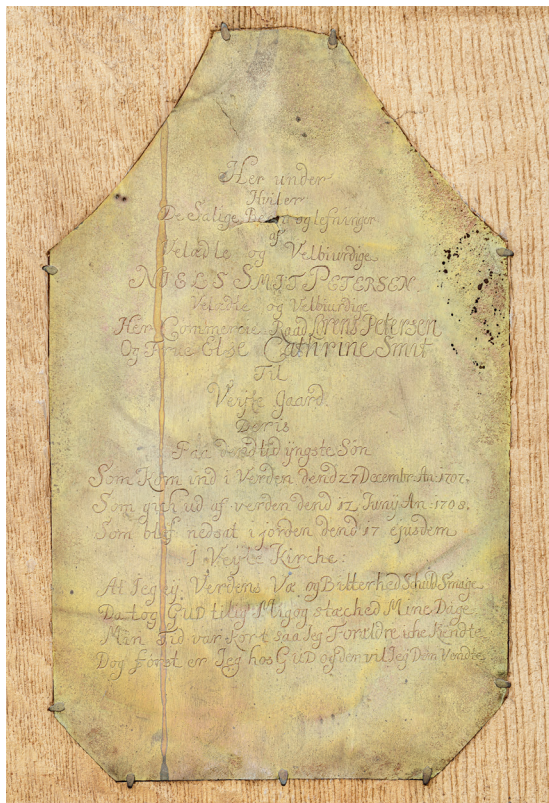 Her under
Hviler
De Salige Been og lefninger
af
Velædle og Velbiurdige
NIELS SMIT PETERSEN.
Velædle og Velbiurdige
Herr Commercie Raad Lorens Petersen
Og Frue Else Cathrine Smit
Til
Vejle gaard.
Deris
Søn
Som Kom ind i Verden dend 27 Decembr An: 1707.
Som gich ud af verden dend 12 Junij An: 1708.
Som blef nedsat i jorden dend 17 ejusdem
I Vejle Kirche:
At Jeg ej Verdens Væ og Bitterhed Schuld Smage
Da tog GUD til sig Mig og stæched Mine Dage
Min Tid var kort saa Jeg Foreldre iche kiendte
Dog først er Jeg hos GUD og der vil Jeg Dem Vendte